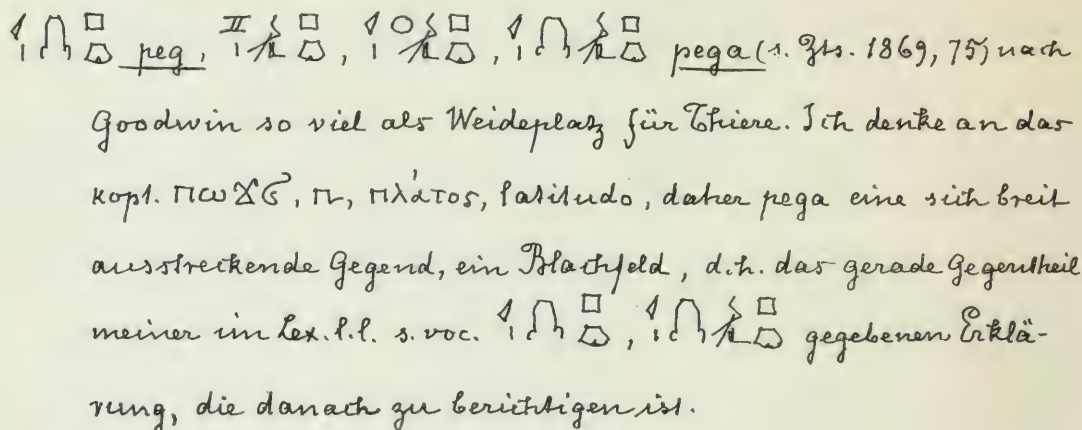 peg, pega (s. Zts. 1869, 75) nach
Goodwin so viel als Weideplatz für Thiere. Ich denke an das
kopt. ⲡⲱϫϭ, ⲡ, πλάτος, latitudo, daher pega eine sich breit
ausstreckende Gegend, ein Blachfeld, d.h. das gerade Gegentheil
meiner im Lex. l.l. s. voc. , gegebenen Erklä-
rung, die danach zu berichtigen ist.